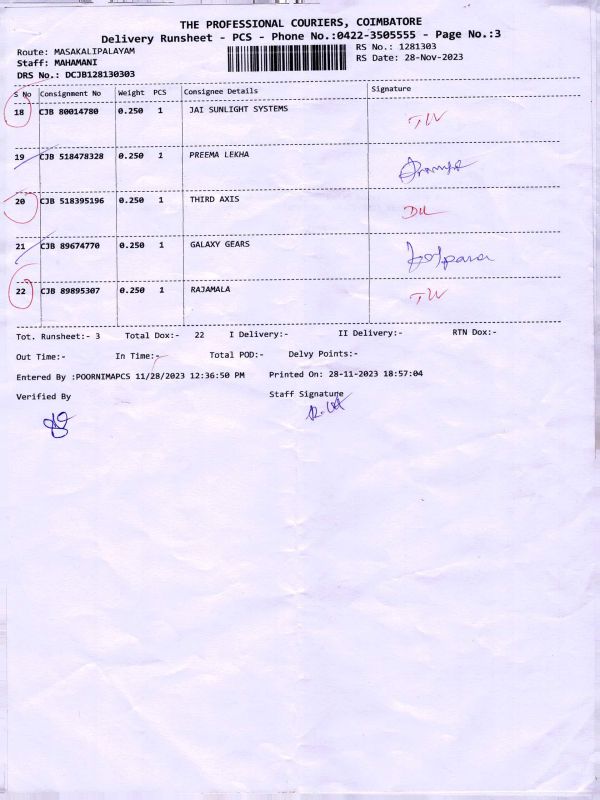 THE PROFESSIONAL COURIERS, COIMBATORE
Delivery Runsheet - PCS - Phone No.:0422-3505555 - Page No.:3
Route: MASAKALIPALAYAM
RS No.: 1281303
Staff: MAHAMANI
RS Date: 28-Nov-2023
DRS No.: DCJB128130303
S No Consignment No Weight PCS Consignee Details Signature
18 CJB 80014780 0.250 1 JAI SUNLIGHT SYSTEMS
19 CJB 518478328 0.250 1 PREEMA LEKHA
20 CJB 518395196 0.250 1 THIRD AXIS
21 CJB 89674770 0.250 1 GALAXY GEARS
22 CJB 89895307 0.250 1 RAJAMALA
Tot. Runsheet:- 3 Total Dox:- 22 I Delivery:- II Delivery:- RTN Dox:-
Out Time:- In Time:- Total POD:- Delvy Points:-
Entered By :POORNIMAPCS 11/28/2023 12:36:50 PM Printed On: 28-11-2023 18:57:04
Verified By Staff Signature